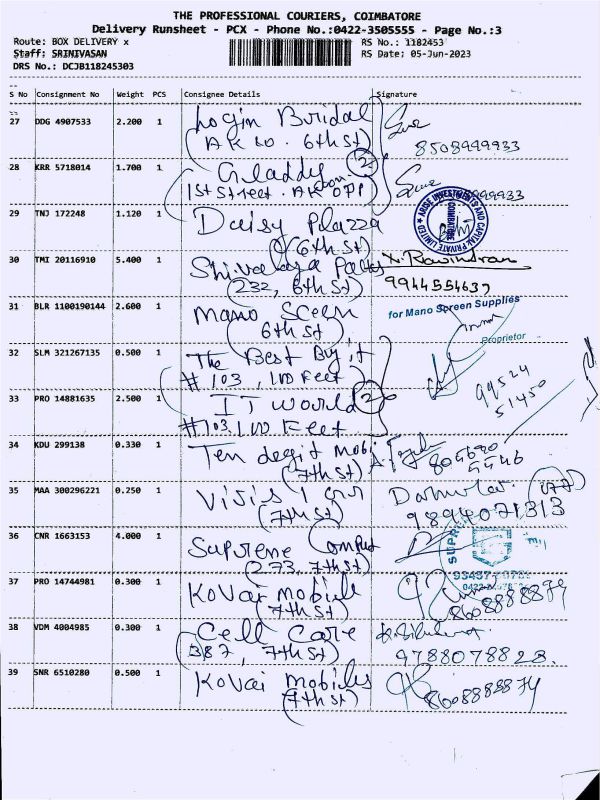 THE PROFESSIONAL COURIERS, COIMBATORE
Delivery Runsheet - PCX - Phone No.:0422-3505555 - Page No.:3
Route: BOX DELIVERY x RS No.: 1182453
Staff: SRINIVASAN RS Date: 05-Jun-2023
DRS No.: DCJB118245303
S No Consignment No Weight PCS Consignee Details Signature
27 DDG 4907533 2.200 1 Login Bridal
(AK 6th St) 8508999933
28 KRR 5718014 1.700 1 Gladdy (2)
1st Street. AK OPP) 999933
29 TNJ 172248 1.120 1 Daisy Plazza
(6th St)
ARISE INVESTMENTS AND CAPITAL PRIVATE LIMITED
COIMBATORE
30 TMI 20116910 5.400 1 Shivalaya N. Ravindran
(232, 6th St) 9944554637
31 BLR 1100190144 2.600 1 Mano Screen for Mano Screen Supplies
(6th St) Proprietor
32 SLM 321267135 0.500 1 The Best Buy it
#103, 100 Feet
33 PRO 14881635 2.500 1 IT World (2) 99524
#103, 100 Feet 51450
34 KDU 299138 0.330 1 Ten degit mobi
(7th St)
35 MAA 300296221 0.250 1
(7th St) 9894071313
36 CNR 1663153 4.000 1 Supreme Comput SUPREME
(273, 7th St)
37 PRO 14744981 0.300 1 Kovai mobile
(7th St) 8608888879
38 VDM 4004985 0.300 1 Cell Care
(387, 7th St) 9788078823.
39 SNR 6510280 0.500 1 Kovai mobiles
(7th St) 8608888879